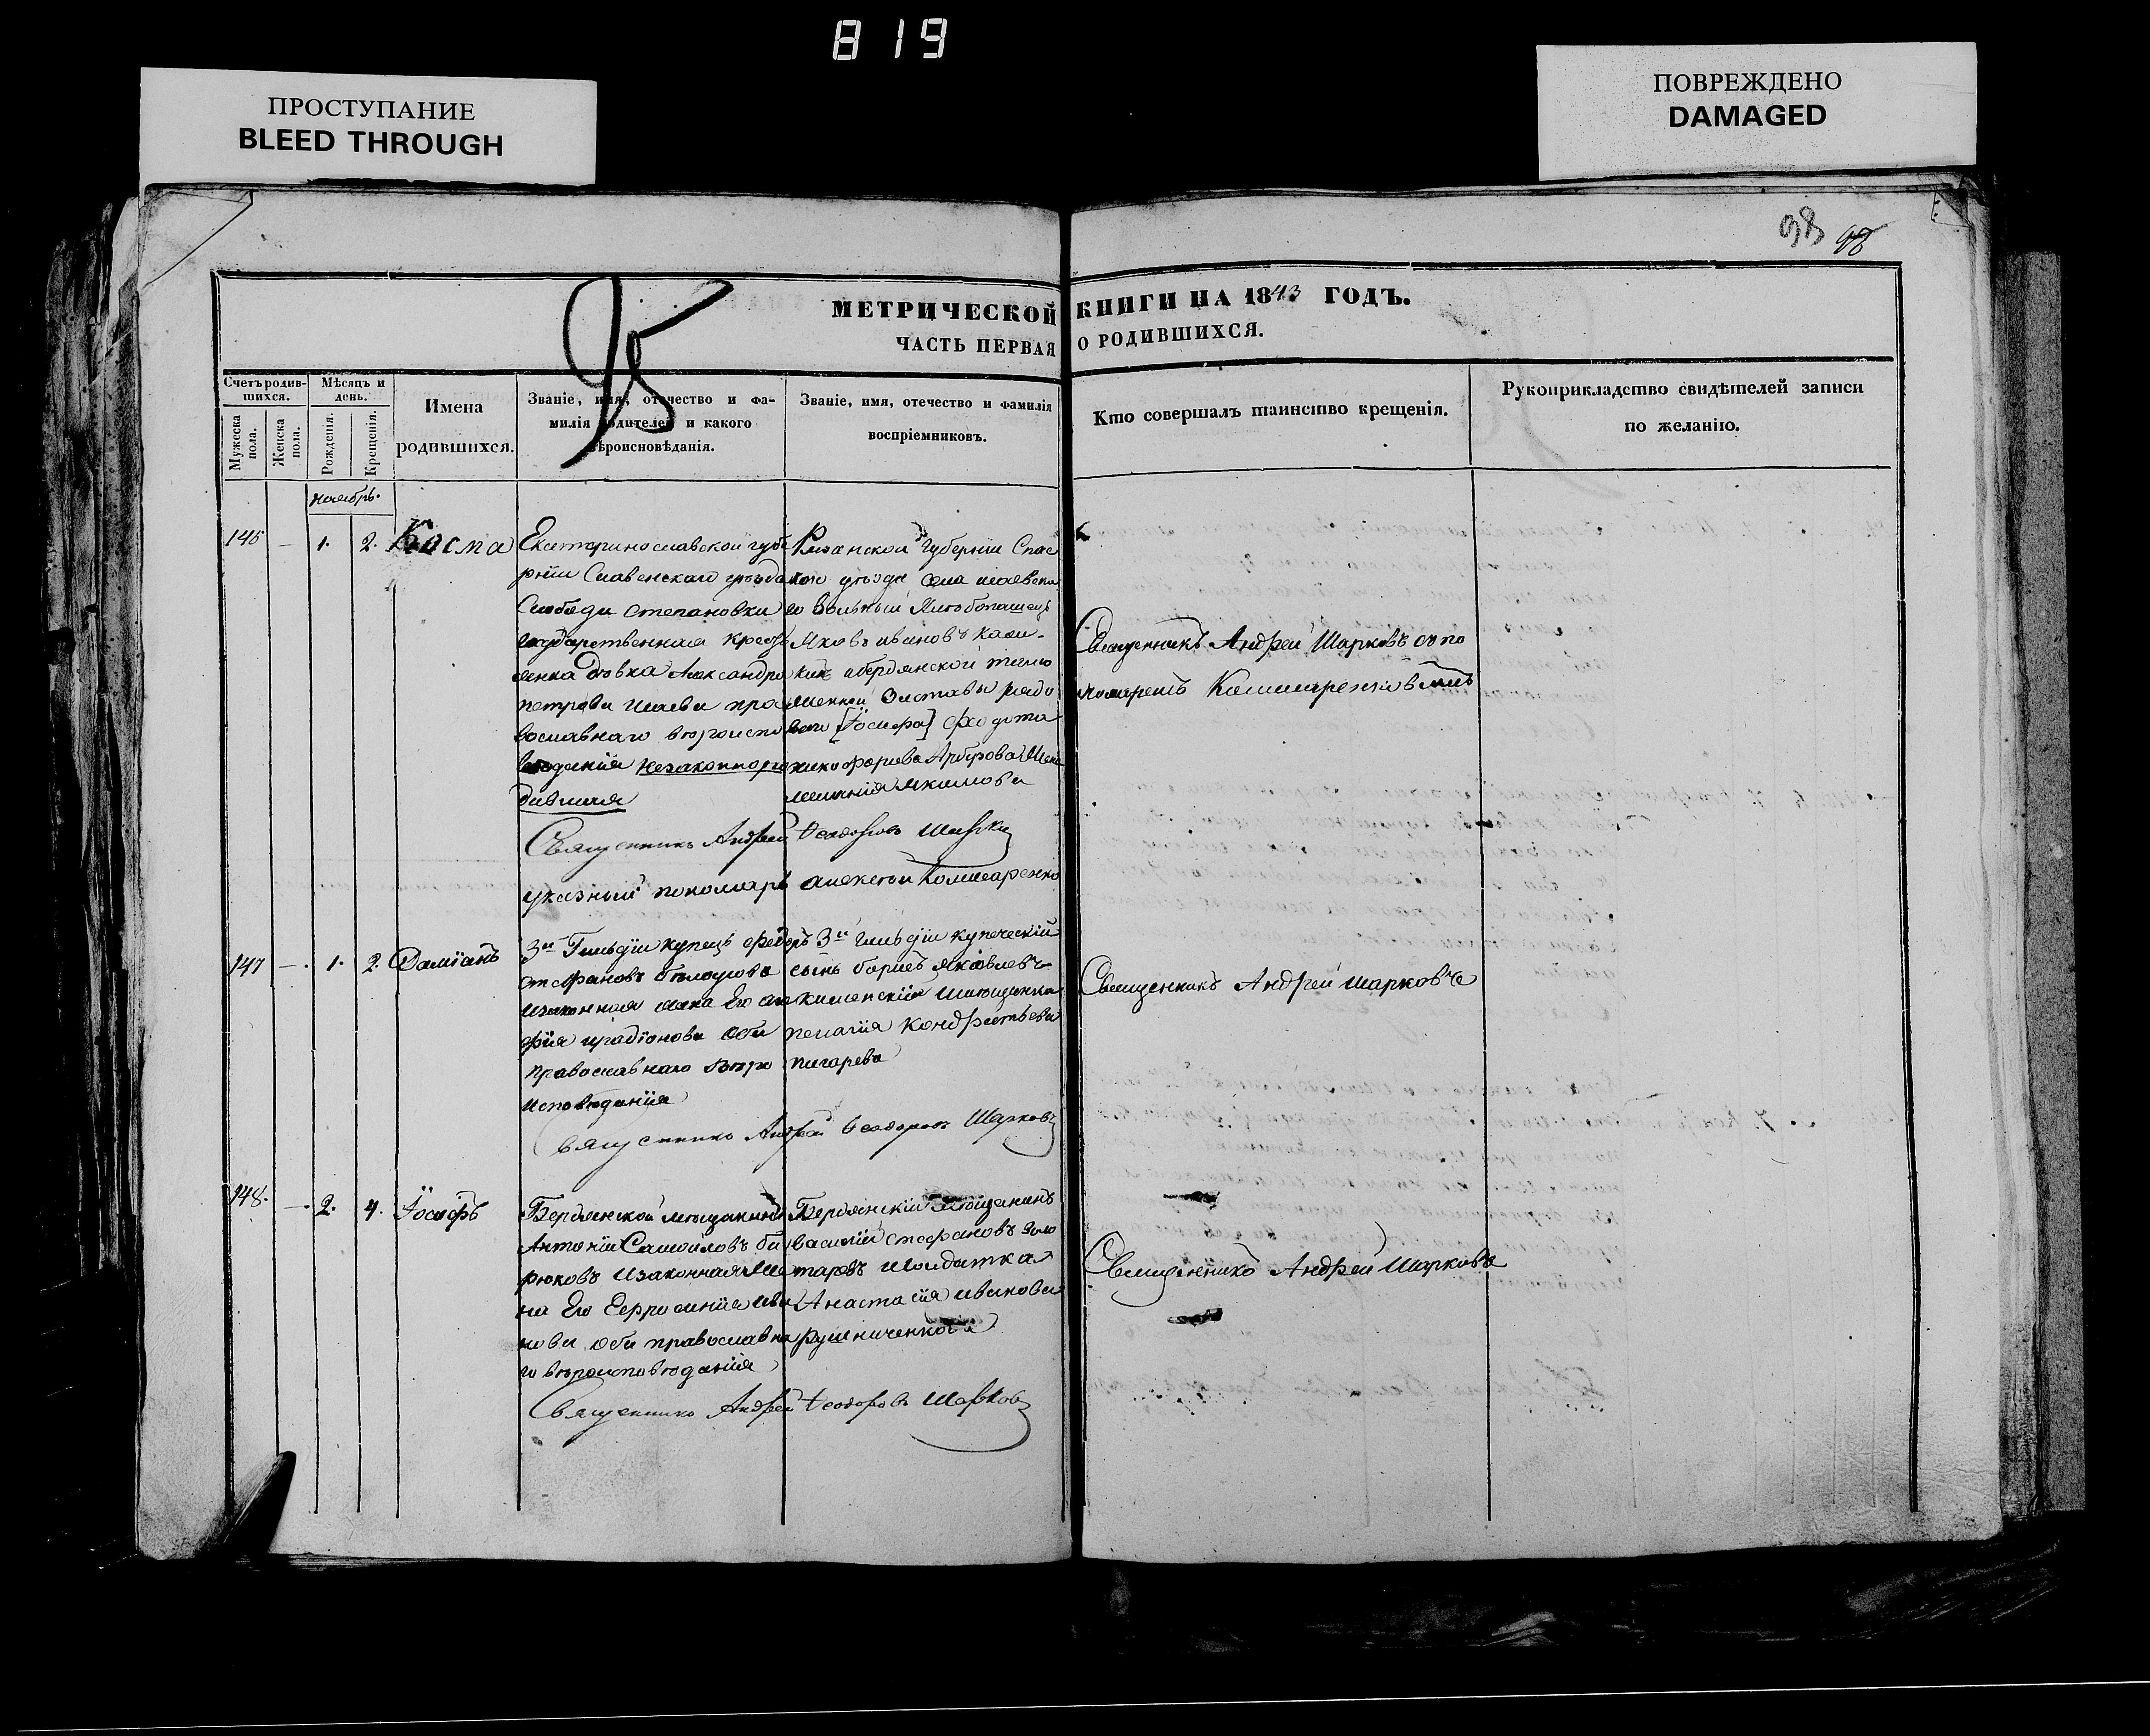 819
ПРОСТУПАНИЕ
BLEED THROUGH
ПОВРЕЖДЕНО
DAMAGED
98 98
95
МЕТРИЧЕСКОЙ КНИГИ НА 1843 ГОДЪ.
ЧАСТЬ ПЕРВАЯ О РОДИВШИХСЯ.
Счетъ родив-
шихся.
Мужеска
пола.
Женска
пола.
Мѣсяцъ и
день.
Рожденія.
Крещенія.
Имена
родившихся.
Званіе, имя, отчество и фа-
милія родителей и какого
вѣроисповѣданія.
Званіе, имя, отечество и фамилія
воспріемниковъ.
Кто совершалъ таинство крещенія.
Рукоприкладство свидѣтелей записи
по желанію.
ноябрь.
146 — 1. 2. Косма
Екатеринославской губе
рніи Славенскаго уѣзда
Слободи Степановки
государственная кресть
янка вдовка Александра
петрова пра
вославнаго вѣроиспо
вѣданія незаконноро
дившая
Рязанской Губерніи Спас
каго уѣзда села
го вольный
Яковъ ивановъ
кинъ бердянской
заставы рядо
ваго [Іосифа] Федота
никофорова
якимова
Священникъ Андрей Шарковъ съ по
номаремъ
Священникъ Андрей Феодоровъ Шарковъ
указный пономарь алексѣй
147 — 1. 2. Даміанъ
3й Гильдіи купецъ федоръ
стефановъ
изаконная жена Его
фія оба
православнаго вѣро
исповѣданія
3й гильдіи купеческій
сынъ борисъ яковлевъ
мѣщанка
пелагія кондратьева
пигарева
Священникъ Андрей Шарковъ
Священникъ Андрей Феодоровъ Шарковъ
148. — 2. 4. Іосифъ
Бердянской мѣщанинъ
Антоній Самойловъ би
рюковъ изаконная же
на Его Ефросинія ива
нова оба православна
го вѣроисповѣданія
Бердянскій мѣщанинъ
василій стефановъ золо
таревъ исолдатка
Анастасія иванова
Священникъ Андрей Шарковъ
Священникъ Андрей Феодоровъ Шарковъ